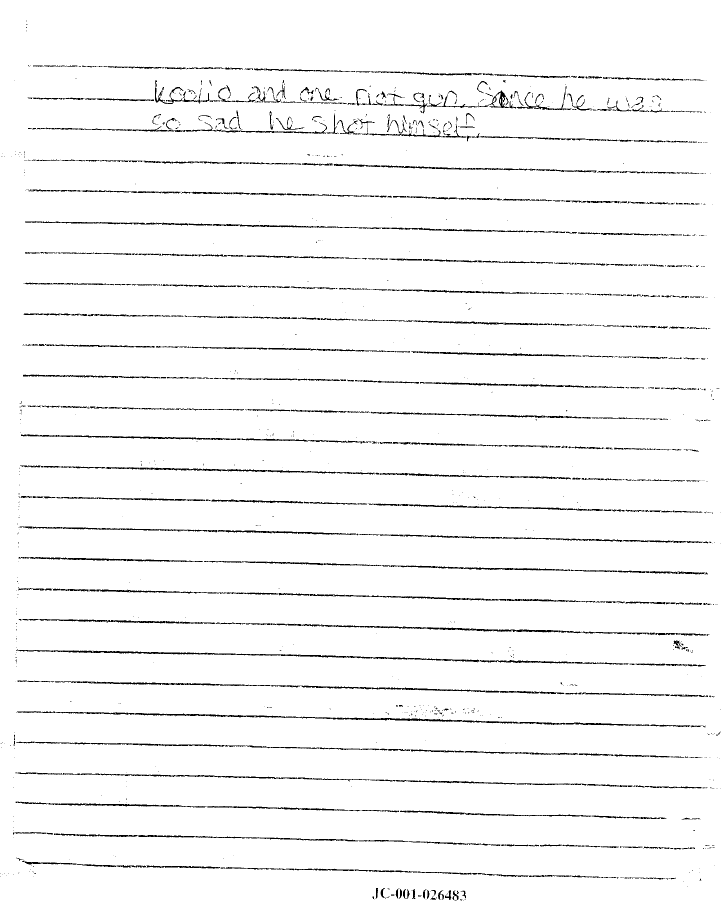 Koolio and one riot gun. Since he was
so sad he shot himself.
JC-001-026483